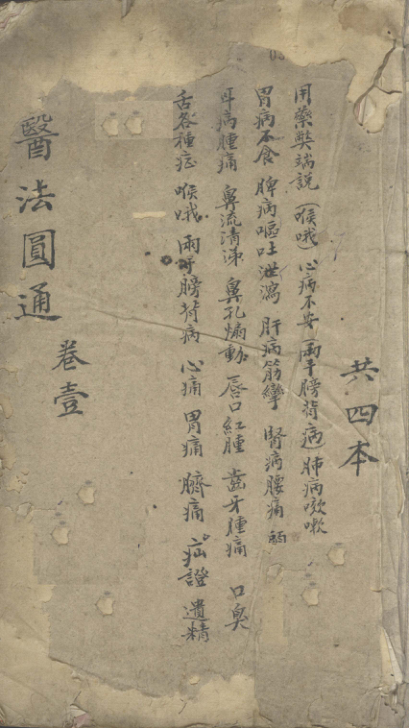 共四本
用藥弊端說(喉哦)心病不安(兩手膀背病)肺病咳嗽
胃病不食 脾病嘔吐泄瀉 肝病筋攣 腎病腰痛
耳病腫痛 鼻流清涕 鼻孔煽動 唇口紅腫 齒牙腫痛 口臭
舌各種症 喉蛾 兩手膀背病 心痛 胃痛 臍痛 疝證 遺精
醫法圓通 卷壹